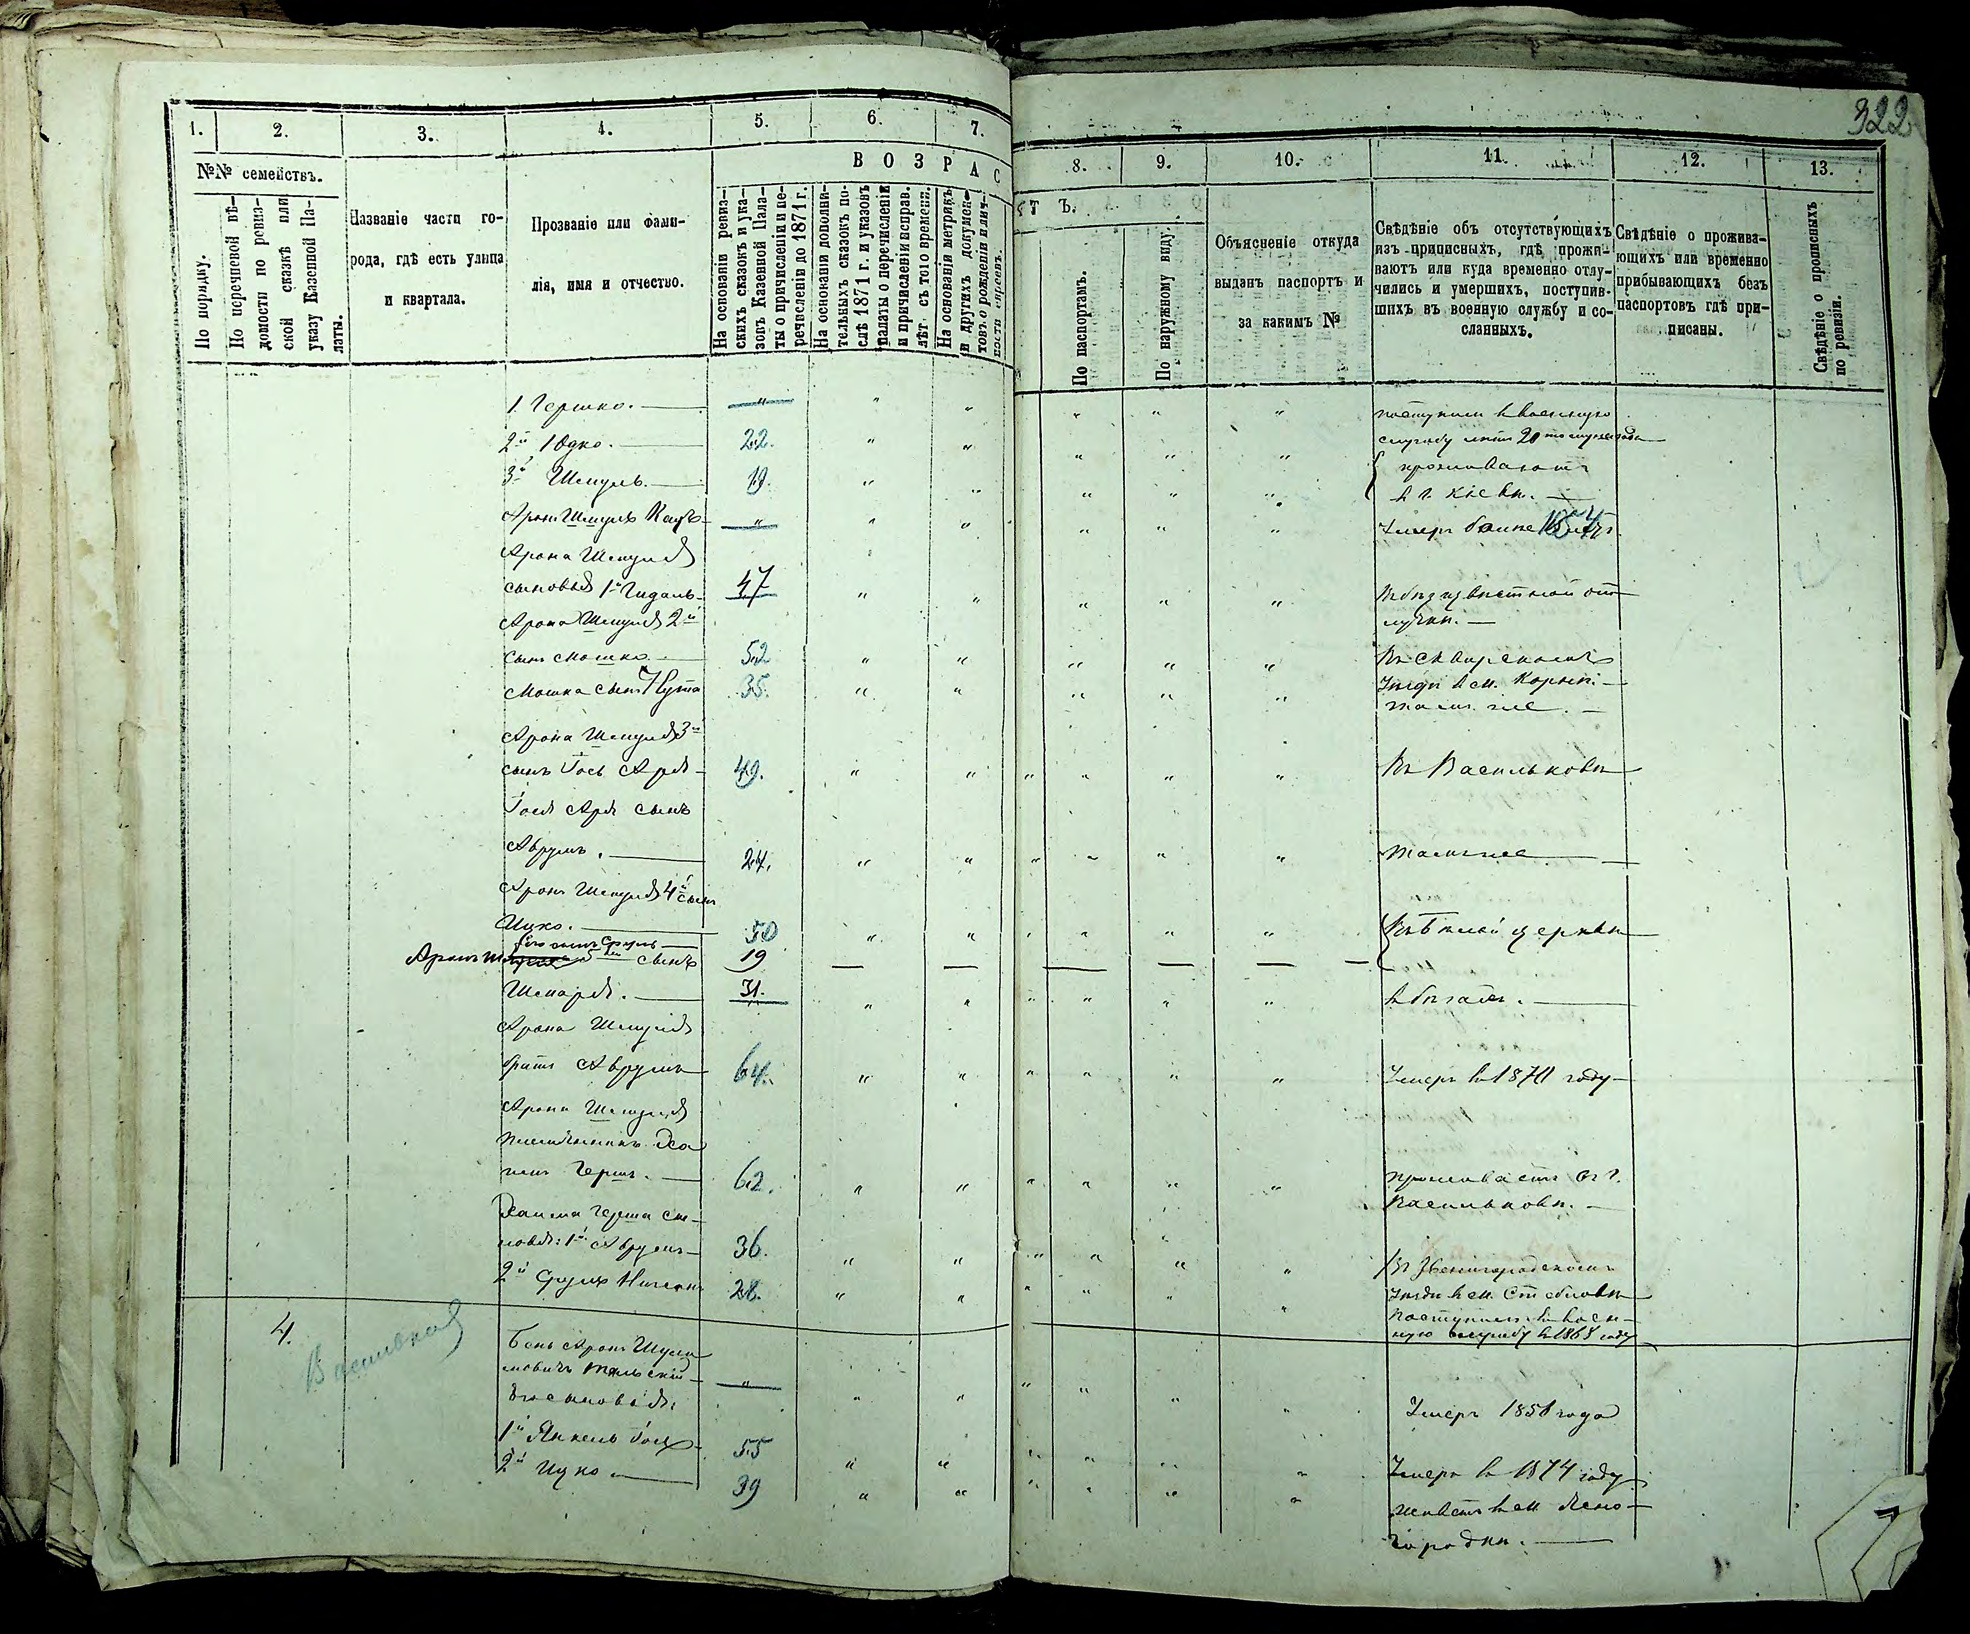 322
1. 2. 3. 4. 5. 6. 7. 8. 9. 10. 11. 12. 13.
В О З Р А С Т Ъ.
№№ семействъ.
По порядку.
По перечневой вѣ-
домости по ревиз-
ской сказкѣ или
указу Казенной Па-
латы.
Названіе части го-
рода, гдѣ есть улица
и квартала.
Прозваніе или фами-
лія, имя и отчество.
На основаніи ревиз-
скихъ сказокъ и ука-
зовъ Казенной Пала-
ты о причисленіи и пе-
речисленіи до 1871 г.
На основаніи дополни-
тельныхъ сказокъ по-
слѣ 1871 г. и указовъ
палаты о перечисленіи
и причисленіи исправ.
лѣт. съ того времени.
На основаніи метрикъ
и другихъ докумен-
товъ о рожденіи и лич-
ности евреевъ.
По паспортамъ.
По наружному виду.
Объясненіе откуда
выданъ паспортъ и
за какимъ №
Свѣдѣніе объ отсутствующихъ
изъ приписныхъ, гдѣ прожи-
ваютъ или куда временно отлу-
чились и умершихъ, поступив-
шихъ въ военную службу и со-
сланныхъ.
Свѣдѣніе о прожива-
ющихъ или временно
прибывающихъ безъ
паспортовъ гдѣ при-
писаны.
Свѣдѣніе о прописныхъ
по ревизіи.
1. Гершко. " " " " " " поступилъ въ военную
службу
2й Юдко. 22. " " " " " проживаютъ
3й Шмуль. 19. " " " " " в г. Кіевѣ.
Аронъ Шмуль " " " " " " Умеръ болѣе
Арона Шмуля
сыновья 1й Гидаль 47 " " " " " въ безъизвѣстной от-
Арона Шмуля 2й лучкѣ.
сынъ Мошко. 52 " " " " " въ Сквирскомъ
Мошка сынъ Нута 35. " " " " " Уѣздѣ в м.
тамъ же.
Арона Шмуля 3й
сынъ Іось Арья 49. " " " " " " въ Васильковѣ
Іося Арья сынъ
Аврумъ. 24. " " " " " " тамъ же
Аронъ Шмуля 4й сынъ
Ицко. 50 " " " " " " въ Бѣлой церкви
его сынъ Сруль 19
Аронъ 5й сынъ
31. " " " " " " в бѣгахъ.
Арона Шмуля
братъ Аврумъ 64. " " " " " " Умеръ в 1871 году
Арона Шмуля
племянникъ Ха-
имъ Гершъ. 62. " " " " " " проживаетъ въ г.
Васильковѣ.
Хаима Герша сы-
новья: 1й Аврумъ 36. " " " " " " въ Звенигородскомъ
2й Сруль 28. " " " " " " Уѣздѣ в м. Стеблевѣ
поступилъ в воен-
ную службу в 1868 году
4. Васильков
Бень Аронъ Шули-
мовичъ Тальскій " " " " " " " Умеръ 1851 года
Его сыновья:
1й Янкель 55 " " " " " " Умеръ в 1874 году
2й Ицко 39 " " " " " " живетъ в м. Ясно-
городки.